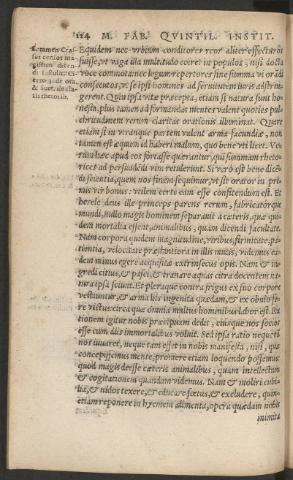 114 M. FAB. QVINTIL. INSTIT.
Equidem nec vrbium conditores reor aliter effecturos
fuisse, vt vaga illa multitudo coiret in populos, nisi docta
voce commota: nec legum repertores sine summa vi orādi
consecutos, vt se ipsi homines ad seruitutem iuris adstrin-
gerent. Quin ipsa vitæ præcepta, etiam si natura sunt ho-
nesta, plus tamen ad formandas mentes valent quoties pul-
chritudinem rerum claritas orationis illuminat. Quare
etiam si in vtranque partem valent arma facundiæ, non
tamen est æquum id haberi malum, quo bene vti licet. Ve-
rùm hæc apud eos forsasse quærantur, qui summam rheto-
rices ad persuadēdi vim retulerint. Si verò est bene dicē-
di scientia, quem nos finem sequimur, vt sit orator in pri-
mis vir bonus: vtilem certè eam esse confitendum est. Et
hercle deus ille princeps parens rerum, fabricatórque
mundi, nullo magis hominem separauit à cæteris, quæ qui-
dem mortalia essent, animalibus, quàm dicendi facultate.
Nam corpora quidem magnitudine, viribus, firmitate, pa-
tientia, velocitate præstantiora in illis mutis, videmus: ea-
dem minus egere acquisitæ extrinsecus opis. Nam & in-
gredi citius, & pasci, & tranare aquas citra docentem na-
tura ipsa sciunt. Et pleraque contra frigus ex suo corpore
vestiuntur, & arma iis ingenita quædam, & ex obuio fe-
re victus: circa quæ omnia multus hominibus labor est. Ra
tionem igitur nobis præcipuam dedit, eiúsque nos socios
esse cum diis immortalibus voluit. Sed ipsa ratio neque tā
nos iuuaret, neque tam esset in nobis manifesta, nisi, quæ
concepissemus mente, promere etiam loquendo possemus:
quod magis deesse cæteris animalibus, quàm intellectum
& cogitationem quandam videmus. Nam & moliri cubi-
lia, & nidos texere, & educare fœtus, & excludere, quin-
etiam reponere in hyemem alimenta, opera quædam nobis
inimita